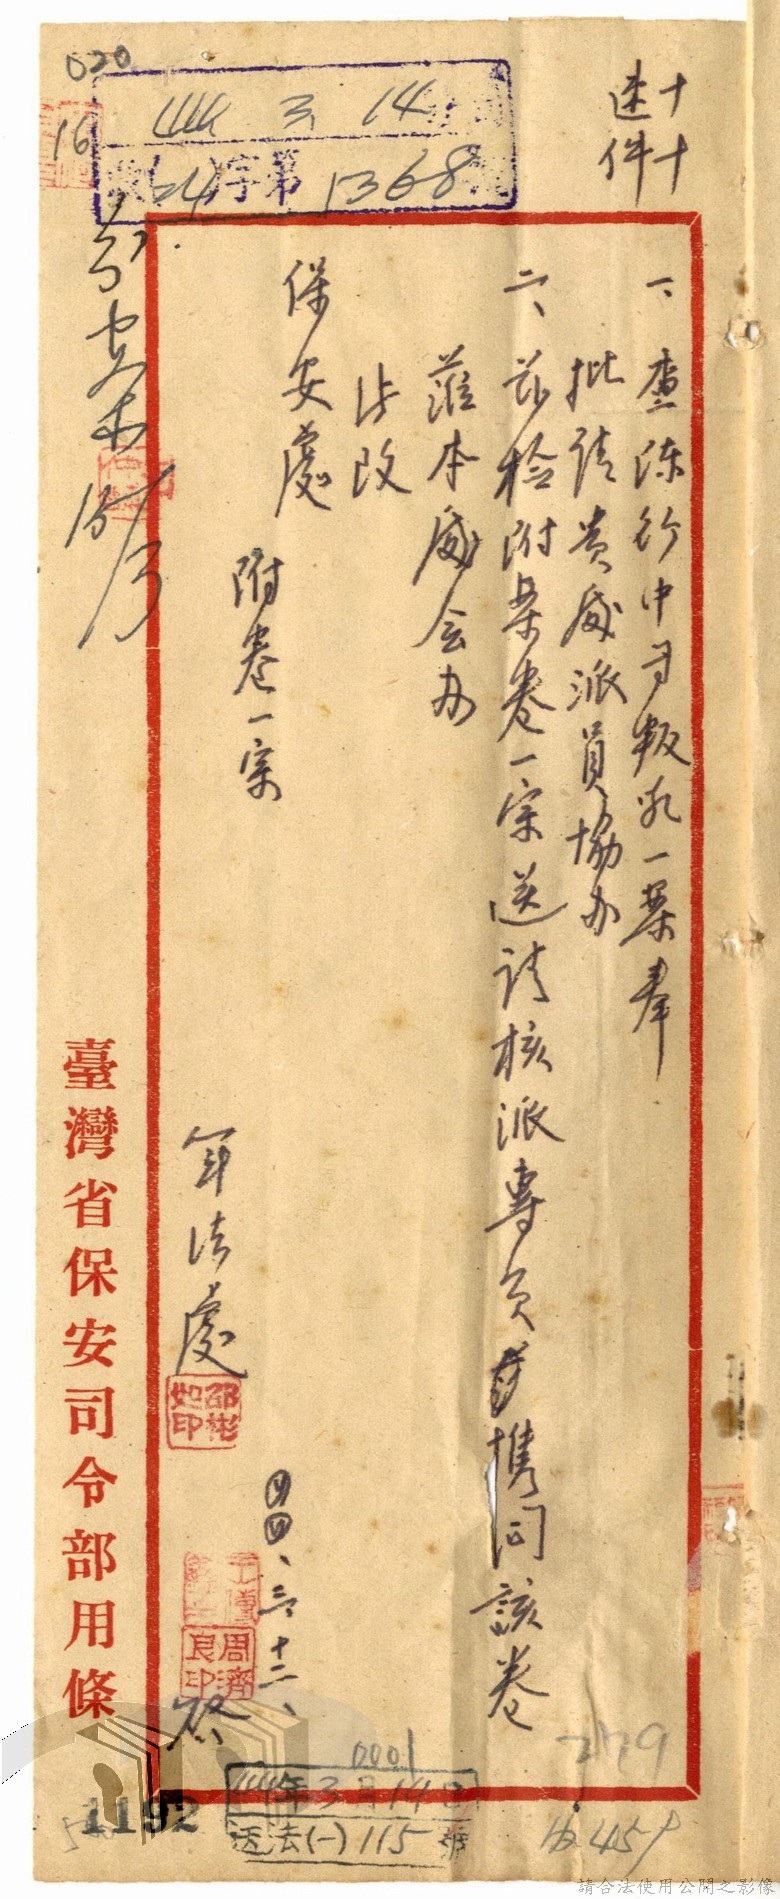 十十
速件
一、查陳行中等叛乱一案奉
批請貴處派員協办
二、茲檢附案卷一宗送請核派專員攜同該卷
蒞本處会办
此致
保安處
附卷一宗
軍法處
邵彬如印
四四、三、十二、
周濟良印
啓
臺灣省保安司令部用條
020
16
44 3 14
(24)字第 1368
15/3
0001
44年3月14日
送法(一)115號
779
1192